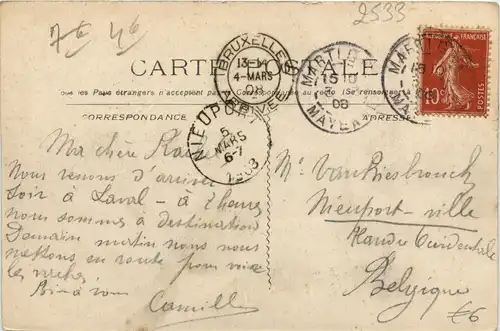 2533
7€ 4€
CARTE POSTALE
Tous les Pays étrangers n'acceptent pas la Correspondance au recto (Se renseigner
CORRESPONDANCE
ADRESSE
BRUXELLES
13-14
4-MARS
08
ARRIVEE
NIEUPORT
5
MARS
6-7
1908
MARTI
15 10
08
MAYENNE
FRANÇAISE
10c
Ma chère
Nous venons d'arriver
soir à Laval - à 7 heures
nous sommes à destination
Demain matin nous nous
mettons en route pour voir
les
Bien à vous
Camille
Mr VanBiesbrouck
Nieuport-ville
Flandre Occidentale
Belgique
€6